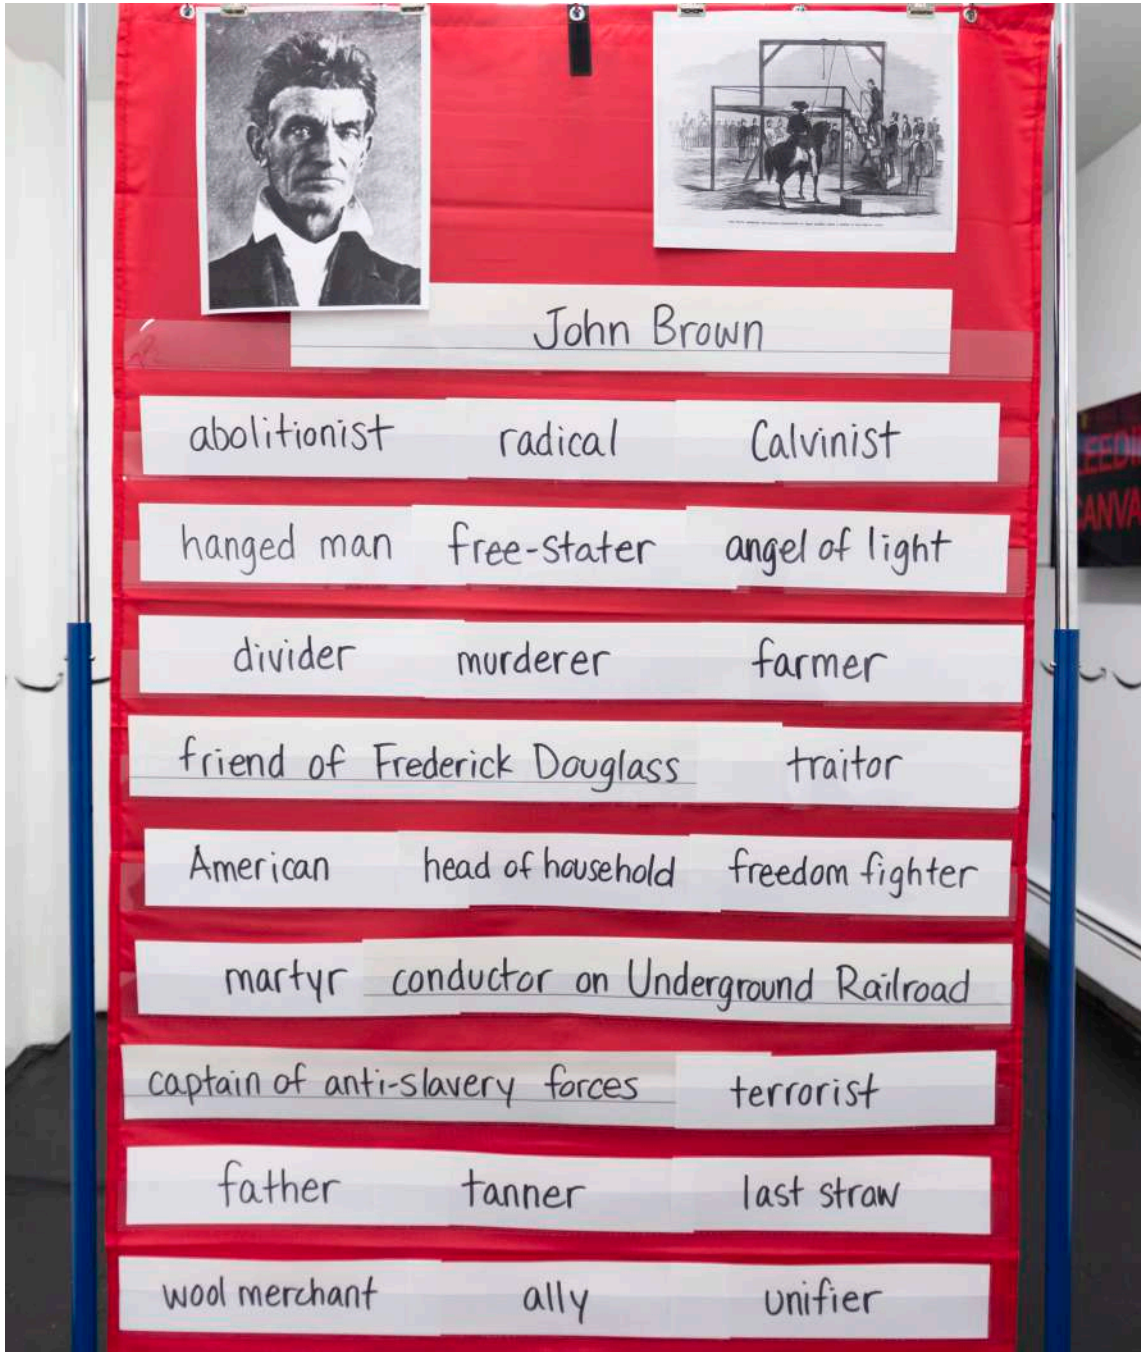 John Brown
abolitionist radical Calvinist
hanged man free-stater angel of light
divider murderer farmer
friend of Frederick Douglass traitor
American head of household freedom fighter
martyr conductor on Underground Railroad
captain of anti-slavery forces terrorist
father tanner last straw
wool merchant ally unifier